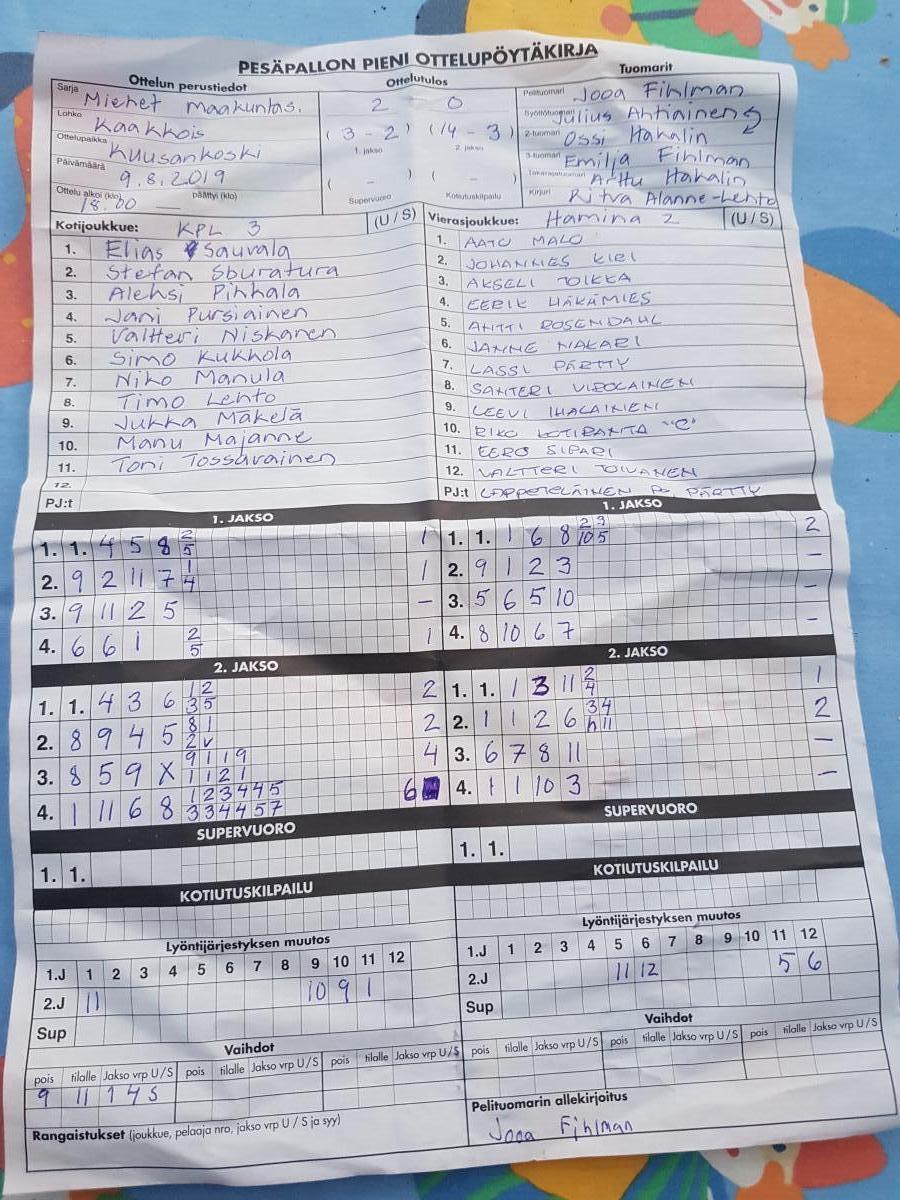 PESÄPALLON PIENI OTTELUPÖYTÄKIRJA
Ottelun perustiedot
Sarja Miehet maakuntas.
Lohko Kaakkois
Ottelupaikka Kuusankoski
Päivämäärä 9.8.2019
Ottelu alkoi (klo) 18.00 päättyi (klo)
Ottelutulos
2 0
(3-2) (14-3)
1. jakso 2. jakso
( - ) ( - )
Supervuoro Kotiutuskilpailu
Tuomarit
Pelituomari Jooa Fihlman
Syöttötuomari Julius Ahtiainen
2-tuomari Ossi Hakalin
3-tuomari Emilja Fihlman
Takarajatuomari Arttu Hakalin
Kirjuri Ritva Alanne-Lehto
Kotijoukkue: KPL 3 (U/S)
1. Elias Sauvala
2. Stefan Sburatura
3. Aleksi Pihkala
4. Jani Pursiainen
5. Valtteri Niskanen
6. Simo Kukkola
7. Niko Manula
8. Timo Lehto
9. Jukka Mäkelä
10. Manu Majanne
11. Toni Tossavainen
12.
PJ:t
Vierasjoukkue: Hamina 2 (U/S)
1. AATU MALO
2. JOHANNES KIRI
3. AKSELI TOIKKA
4. EERIK HÄKÄMIES
5. ANTTI ROSENDAHL
6. JANNE NAKARI
7. LASSI PÄRTTY
8. SANTERI VIROLAINEN
9. LEEVI IHALAINEN
10. RIKO KOTIRANTA "C"
11. EERO SIPARI
12. VALTTERI TOIVANEN
PJ:t LAPPETELÄINEN PÄRTTY
1. JAKSO
1. 1. 4 5 8 2/5 1
2. 9 2 11 7 1/4 1
3. 9 11 2 5 –
4. 6 6 1 2/5 1
1. JAKSO
1. 1. 1 6 8 2/10 3/5 2
2. 9 1 2 3 –
3. 5 6 5 10 –
4. 8 10 6 7 –
2. JAKSO
1. 1. 4 3 6 1/3 2/5 2
2. 8 9 4 5 8/2 1/v 2
3. 8 5 9 X 9/1 1/1 1/2 9/1 4
4. 1 11 6 8 1/3 2/3 3/4 4/4 4/5 5/7 6
2. JAKSO
1. 1. 1 3 11 2/4 1
2. 1 1 2 6 3/h 4/11 2
3. 6 7 8 11 –
4. 1 1 10 3 –
SUPERVUORO
1. 1.
KOTIUTUSKILPAILU
SUPERVUORO
1. 1.
KOTIUTUSKILPAILU
Lyöntijärjestyksen muutos
1.J 1 2 3 4 5 6 7 8 9 10 11 12
2.J 11 10 9 1
Sup
Lyöntijärjestyksen muutos
1.J 1 2 3 4 5 6 7 8 9 10 11 12
2.J 11 12 5 6
Sup
Vaihdot
pois tilalle Jakso vrp U/S pois tilalle Jakso vrp U/S pois tilalle Jakso vrp U/S
9 11 1 4 S
Vaihdot
pois tilalle Jakso vrp U/S pois tilalle Jakso vrp U/S pois tilalle Jakso vrp U/S
Rangaistukset (joukkue, pelaaja nro, jakso vrp U / S ja syy)
Pelituomarin allekirjoitus
Jooa Fihlman